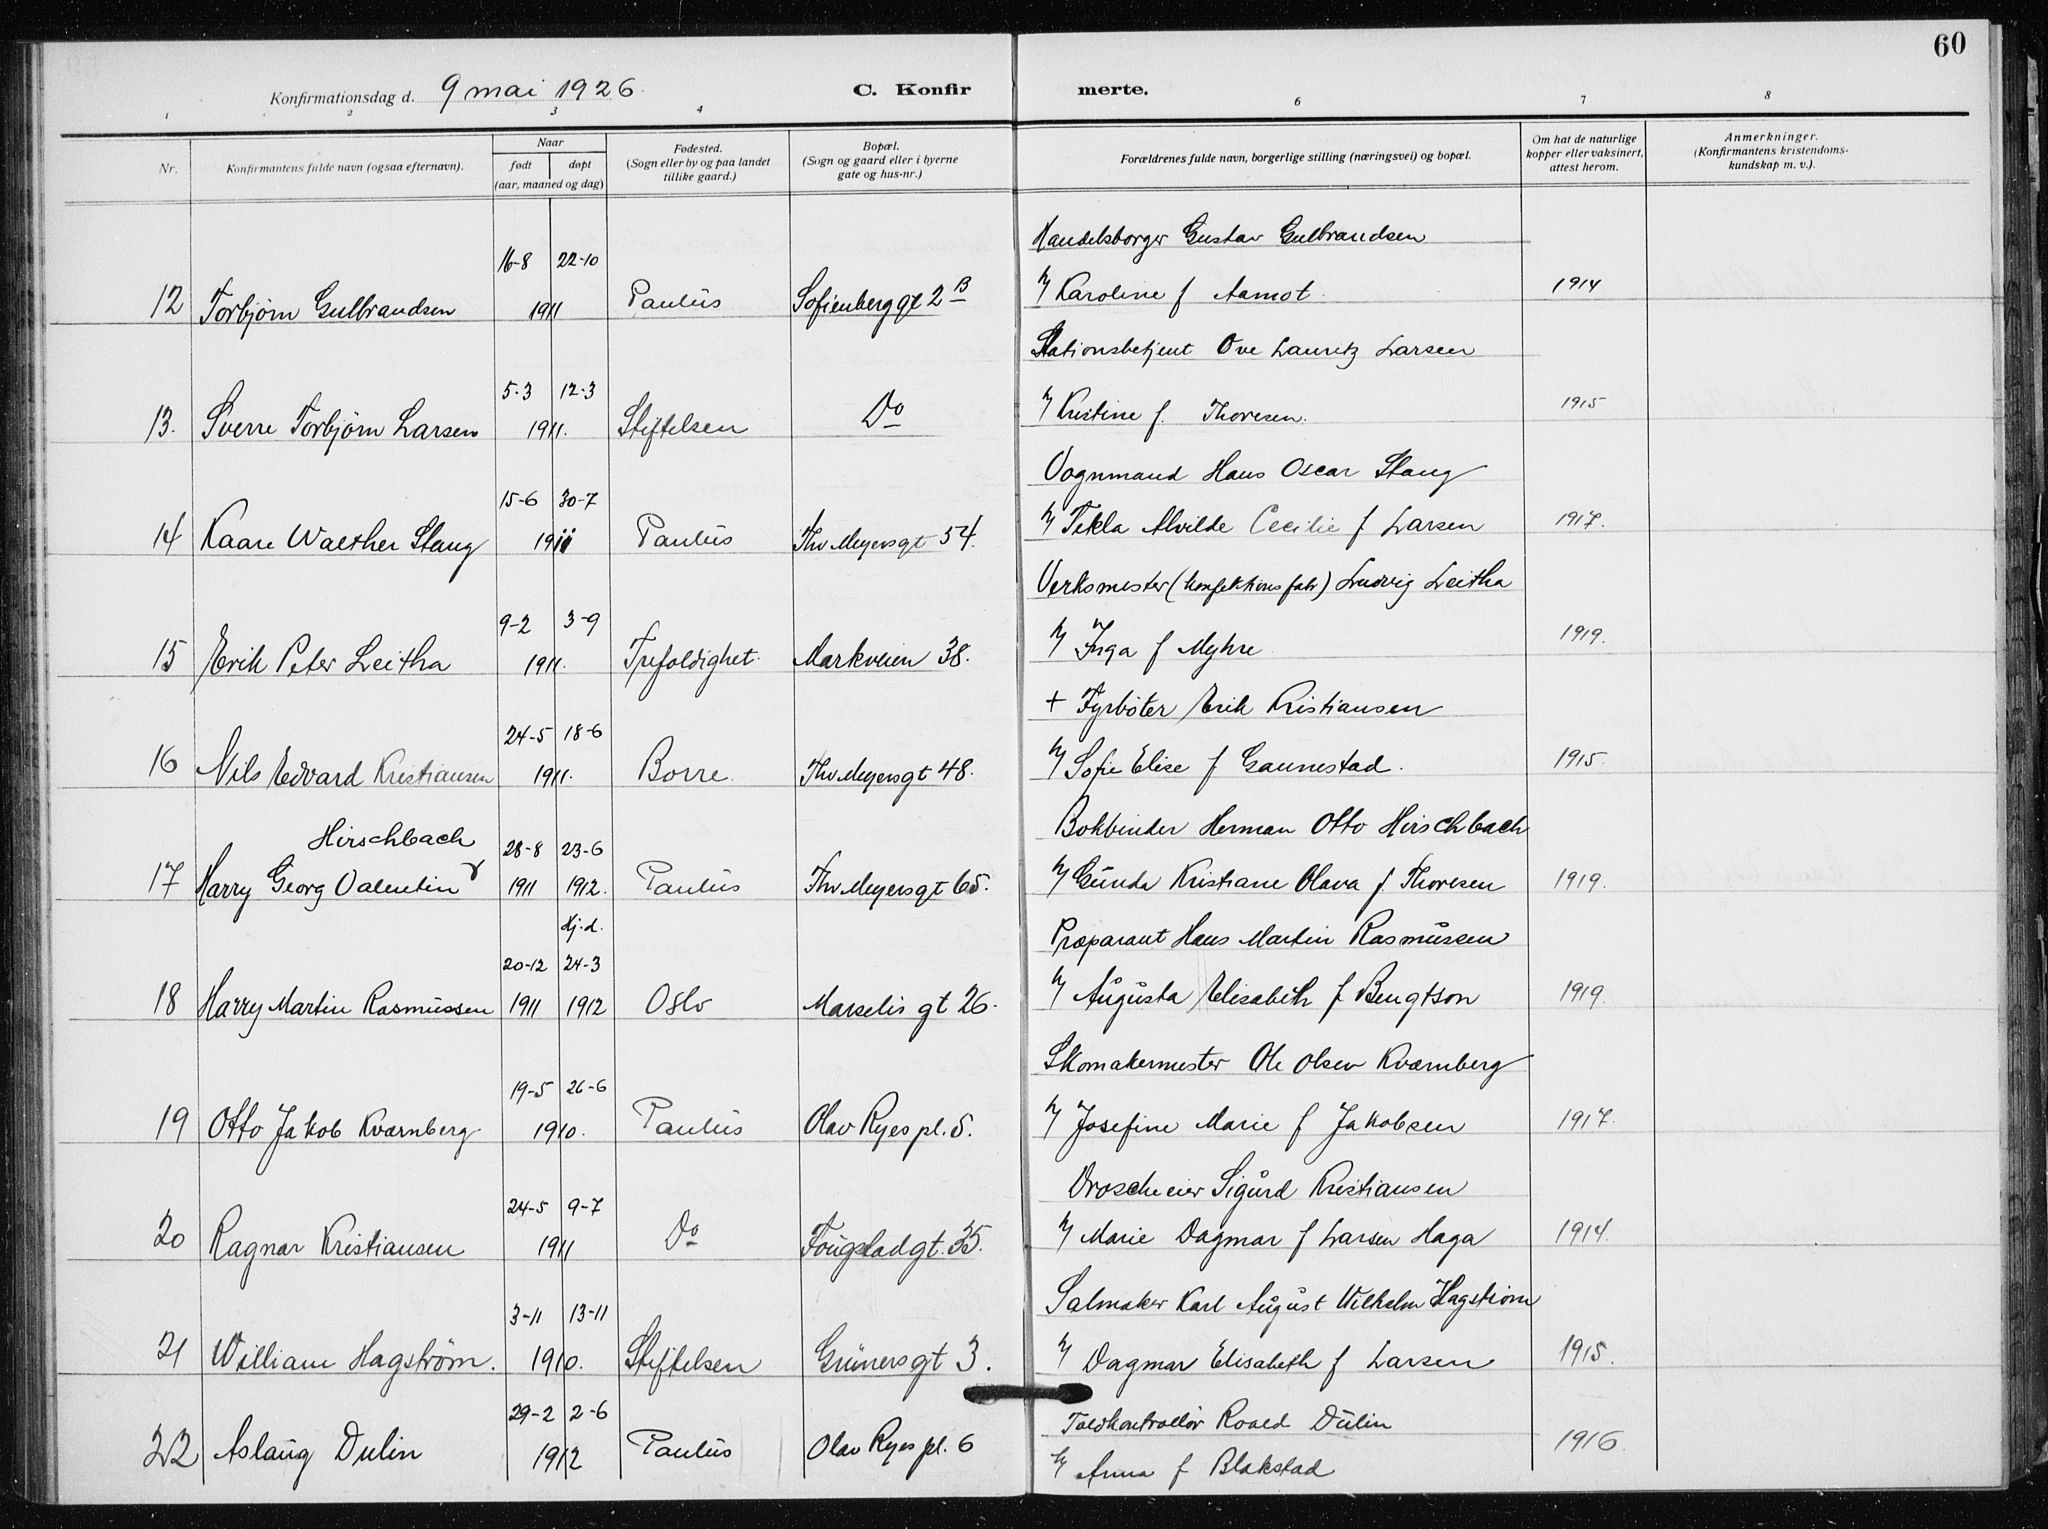 60
Konfirmationsdag d. 9 mai 1926. C. Konfirmerte.
1 2 3 4 5 6 7 8
Nr. Konfirmantens fulde navn (ogsaa efternavn). Naar født døpt (aar, maaned og dag) Fødested. (Sogn eller by og paa landet tillike gaard.) Bopæl. (Sogn og gaard eller i byerne gate og hus-nr.) Forældrenes fulde navn, borgerlige stilling (næringsvei) og bopæl. Om hat de naturlige kopper eller vaksinert, attest herom. Anmerkninger. (Konfirmantens kristendomskundskap m. v.).
Handelsborger Gustav Gulbrandsen
16-8 22-10
12 Torbjørn Gulbrandsen 1911 Paulus Sofienberggt 2 B Karoline f Aamot. 1914
Stationsbetjent Ove Lauritz Larsen
5-3 12-3
13. Sverre Torbjørn Larsen 1911. Stiftelsen Do Kristine f. Thoresen. 1915
Vognmand Hans Oscar Stang
15-6 30-7
14 Kaare Walther Stang 1911 Paulus Thv Meyersgt 54. Tekla Alvilde Cecilie f Larsen 1917.
Verksmester (konfektions fabr) Ludvig Leitha
9-2 3-9
15 Erik Peter Leitha 1911. Trefoldighet. Markveien 38. Inga f Myhre 1919.
+ Fyrbøter Erik Kristiansen
24-5 18-6
16 Nils Edvard Kristiansen 1911. Borre. Thv Meyersgt 48. Sofie Elise f Gaunestad. 1915.
Bokbinder Herman Otto Hirschbach
Hirschbach 28-8 23-6
17 Harry Georg Valentin 1911 1912. Paulus Thv Meyersgt 65. Gunda Kristiane Olava f Thoresen 1919.
Hj.d. Præparant Hans Martin Rasmussen
20-12 24-3
18 Harry Martin Rasmussen 1911 1912 Oslo Marselis gt 26. Augusta Elisabeth f Bengtson 1919.
Skomakermester Ole Olsen Kværnberg
19-5 26-6
19 Otto Jakob Kværnberg 1910. Paulus Olav Ryes pl. 5. Josefine Marie f Jakobsen 1917.
Droscheeier Sigurd Kristiansen
24-5 9-7
20 Ragnar Kristiansen 1911 Do Fougstadgt. 35. Marie Dagmar f Larsen Haga 1914.
Salmaker Karl August Wilhelm Hagstrøm
3-11 13-11
21 William Hagstrøm. 1910. Stiftelsen Grünersgt 3. Dagmar Elisabeth f Larsen 1915.
29-2 2-6 Toldkontrollør Roald Dulin
22 Aslaug Dulin 1912 Paulus Olav Ryes pl. 6 Anna f Blakstad 1916.